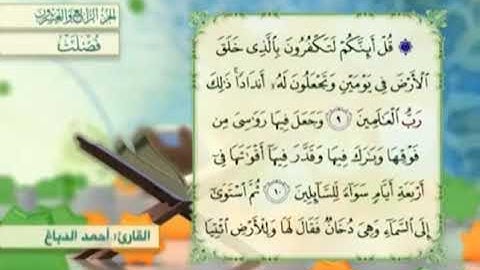 الجزء الرابع والعشرون
فُصِّلَتْ
قُلْ أَئِنَّكُمْ لَتَكْفُرُونَ بِالَّذِى خَلَقَ
الْأَرْضَ فِى يَوْمَيْنِ وَتَجْعَلُونَ لَهُۥ أَندَادًا ذَٰلِكَ
رَبُّ الْعَالَمِينَ ۝٩ وَجَعَلَ فِيهَا رَوَاسِىَ مِن
فَوْقِهَا وَبَارَكَ فِيهَا وَقَدَّرَ فِيهَا أَقْوَاتَهَا فِى
أَرْبَعَةِ أَيَّامٍ سَوَاءً لِّلسَّائِلِينَ ۝١٠ ثُمَّ اسْتَوَىٰ
إِلَى السَّمَاءِ وَهِىَ دُخَانٌ فَقَالَ لَهَا وَلِلْأَرْضِ ائْتِيَا
القارئ: أحمد الدباغ